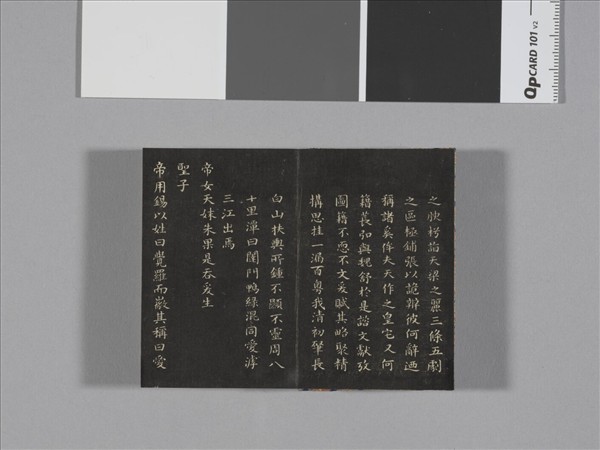 之枍詣天梁之麗三條五劇
之區極鋪張以詭辯彼何辭迺
稱諸奚侔夫天作之皇宅又何
籍萇弘與魏舒於是諮文獻攷
圖籍不恧不文爰賦其略聚精
搆思挂一漏百粵我清初肇長
白山扶輿所鍾不顯不靈周八
十里潭曰闥門鴨綠混同愛滹
三江出焉
帝女天妹朱果是吞爰生
聖子
帝用錫以姓曰覺羅而其稱曰愛
QPCARD 101 v2